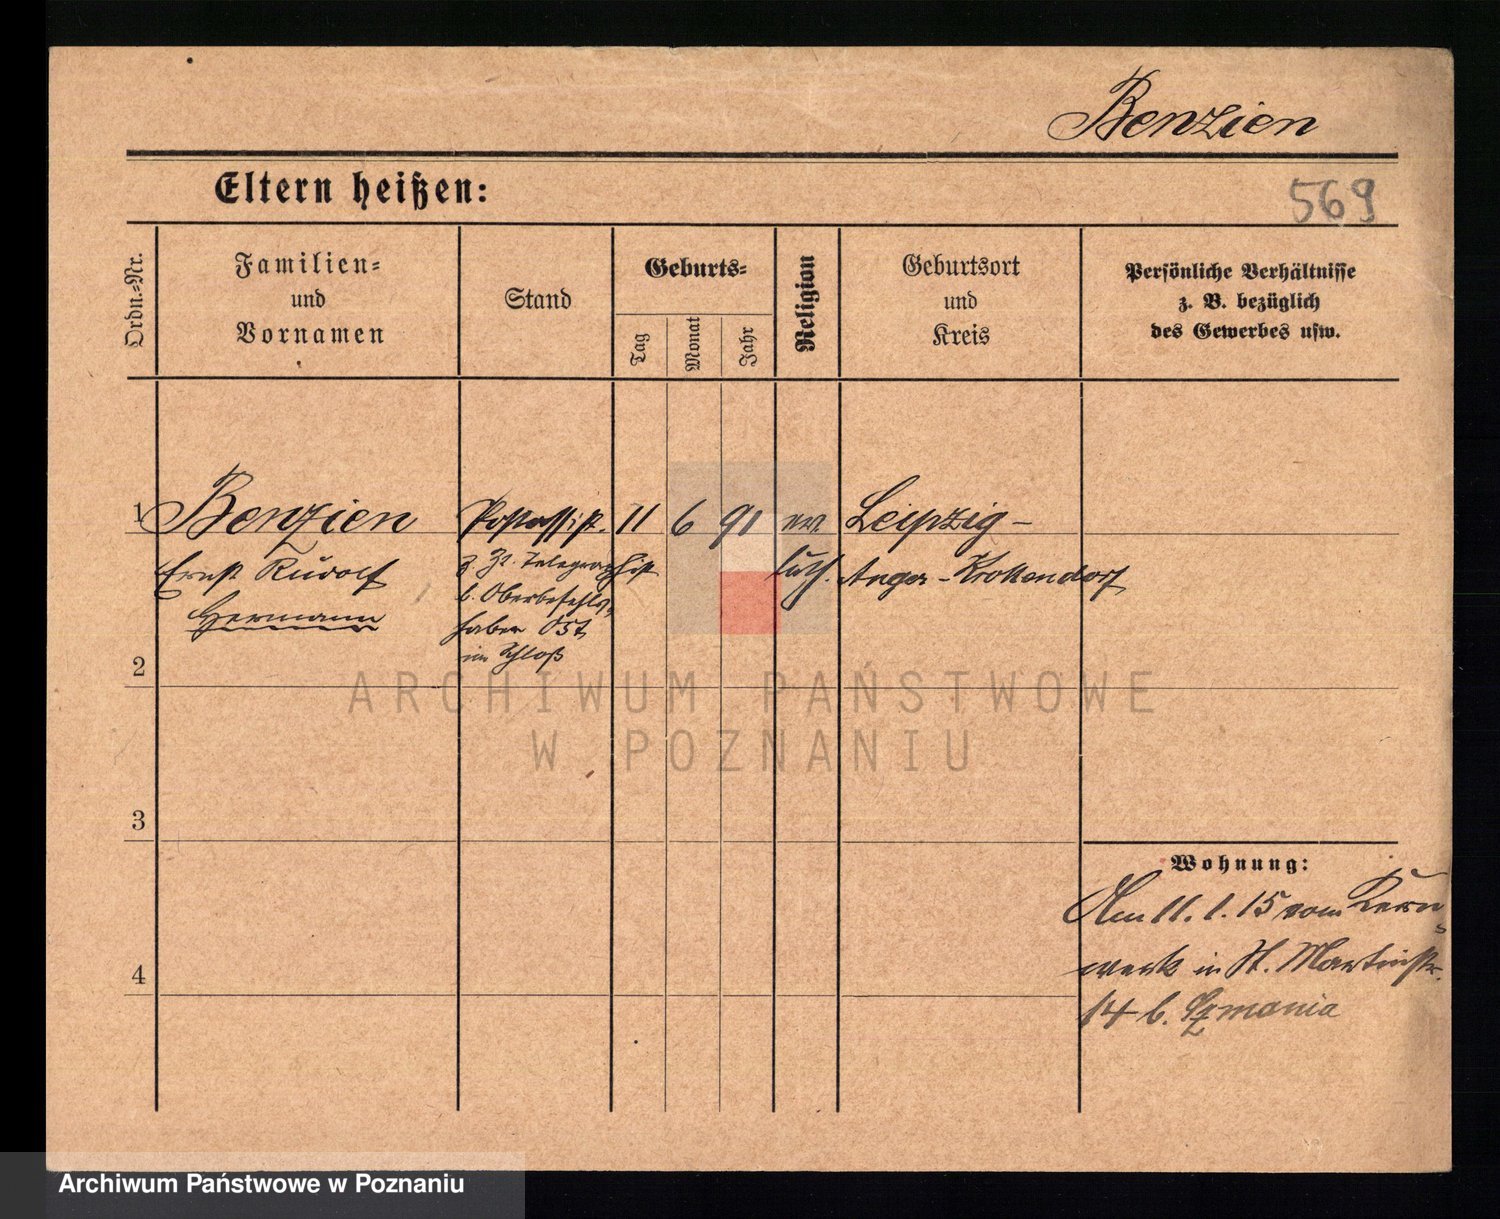 Benzien
Eltern heißen:
569
Ordn.-Nr.
Familien-
und
Vornamen
Stand
Geburts-
Tag
Monat
Jahr
Religion
Geburtsort
und
Kreis
Persönliche Verhältnisse
z. B. bezüglich
des Gewerbes usw.
1
Benzien
Ernst Rudolf
Hermann
Postassist.
z. Zt. Telegraphist
b. Oberbefehls-
haber Ost
im Schloß
11 6 91
ev.
luth.
Leipzig-
Anger-Krottendorf
2
3
4
Wohnung:
Am 11.1.15 vom Kern-
werk in St. Martinstr.
14 b. Szmania
ARCHIWUM PAŃSTWOWE
W POZNANIU
Archiwum Państwowe w Poznaniu